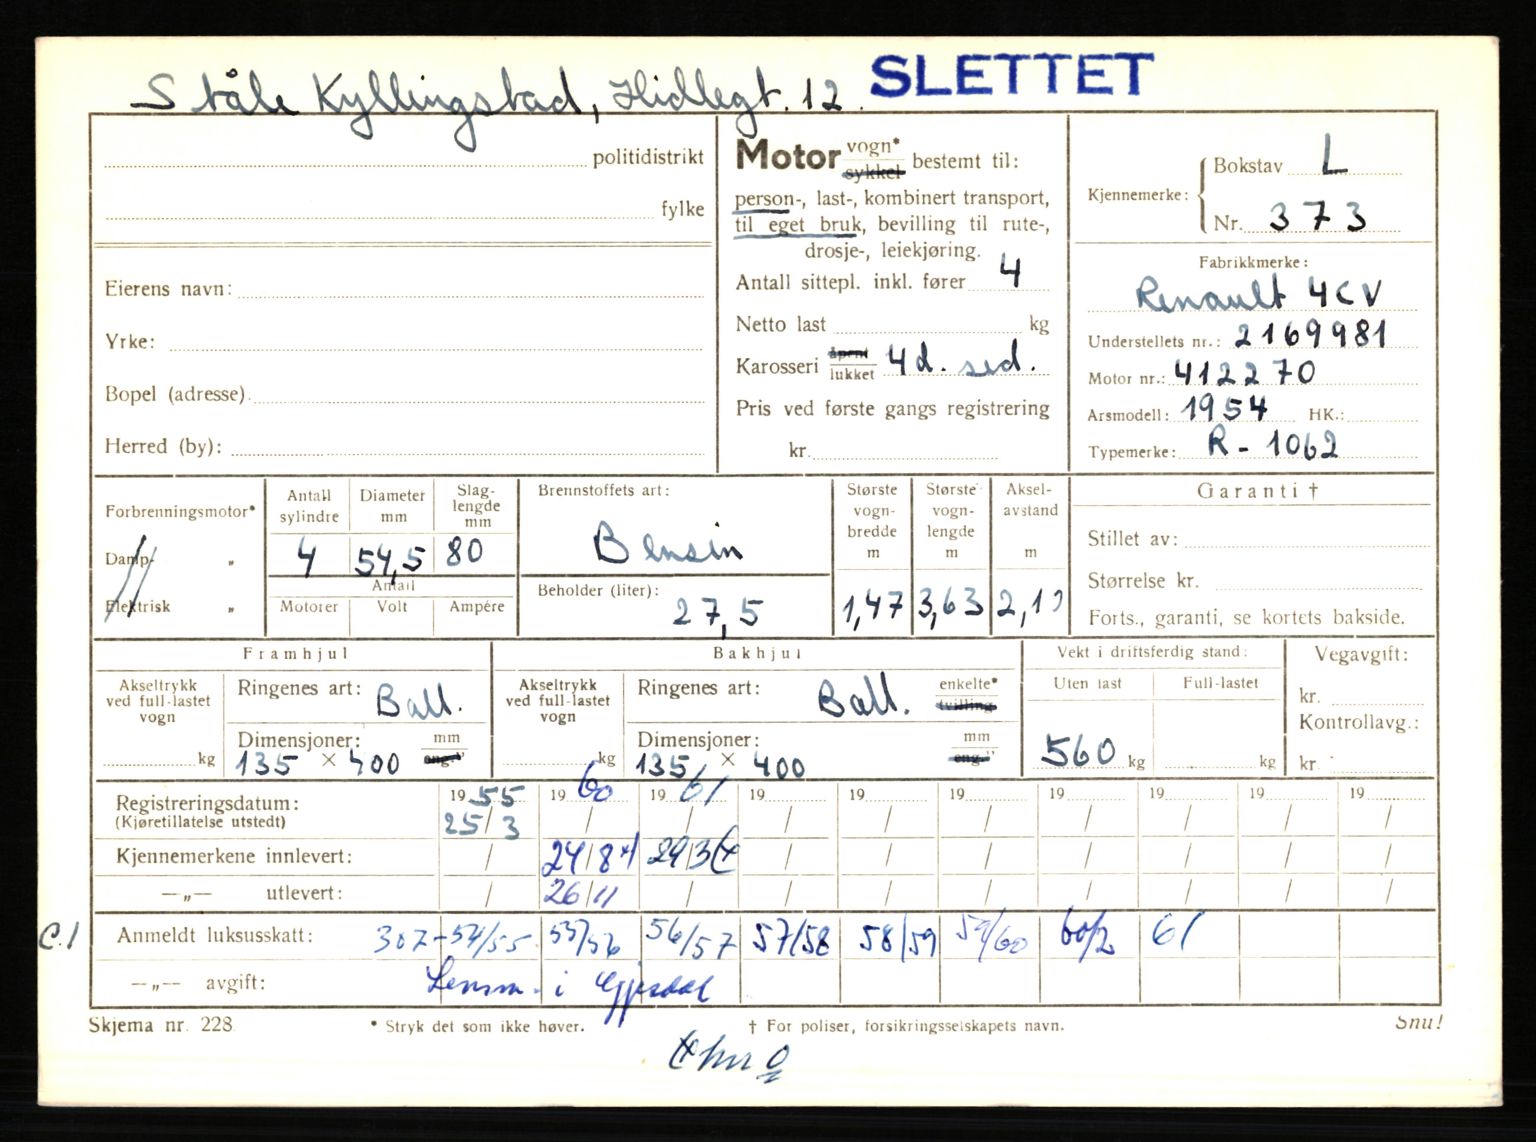 Ståle Kyllingstad, Hidlegt. 12. SLETTET
politidistrikt
fylke
Eierens navn:
Yrke:
Bopel (adresse)
Herred (by):
Motor vogn* sykkel bestemt til:
person-, last-, kombinert transport,
til eget bruk, bevilling til rute-,
drosje-, leiekjøring.
Antall sittepl. inkl. fører 4
Netto last kg
Karosseri åpent lukket 4d. sed.
Pris ved første gangs registrering
kr.
Kjennemerke: Bokstav L
Nr. 373
Fabrikkmerke:
Renault 4CV
Understellets nr.: 2169981
Motor nr.: 412270
Årsmodell: 1954 HK.:
Typemerke: R - 1062
Forbrenningsmotor*
Damp- „
Elektrisk „
Antall sylindre Diameter mm Slaglengde mm
4 54,5 80
Antall
Motorer Volt Ampére
Brennstoffets art:
Bensin
Beholder (liter):
27,5
Største vognbredde m
1,47
Største vognlengde m
3,63
Akselavstand m
2,1
Garanti †
Stillet av:
Størrelse kr.
Forts., garanti, se kortets bakside.
Framhjul
Akseltrykk ved full-lastet vogn
kg
Ringenes art: Ball.
Dimensjoner: mm eng."
135 × 400
Bakhjul
Akseltrykk ved full-lastet vogn
kg
Ringenes art: Ball. enkelte* tvilling
Dimensjoner: mm eng."
135 × 400
Vekt i driftsferdig stand:
Uten last Full-lastet
560 kg kg
Vegavgift:
kr.
Kontrollavg.:
kr.
Registreringsdatum: 19 55 19 60 19 61 19 19 19 19 19 19 19
(Kjøretillatelse utstedt) 25/3 / / / / / / / / /
Kjennemerkene innlevert: / 24/8 x) 29/3 / / / / / / /
—„— utlevert: / 26/11 / / / / / / / /
C.1 Anmeldt luksusskatt: 307-54/55 55/56 56/57 57/58 58/59 59/60 60/2 61
—„— avgift: Lensm. i Gjesdal
Skjema nr. 228 * Stryk det som ikke høver. † For poliser, forsikringsselskapets navn. Snu!